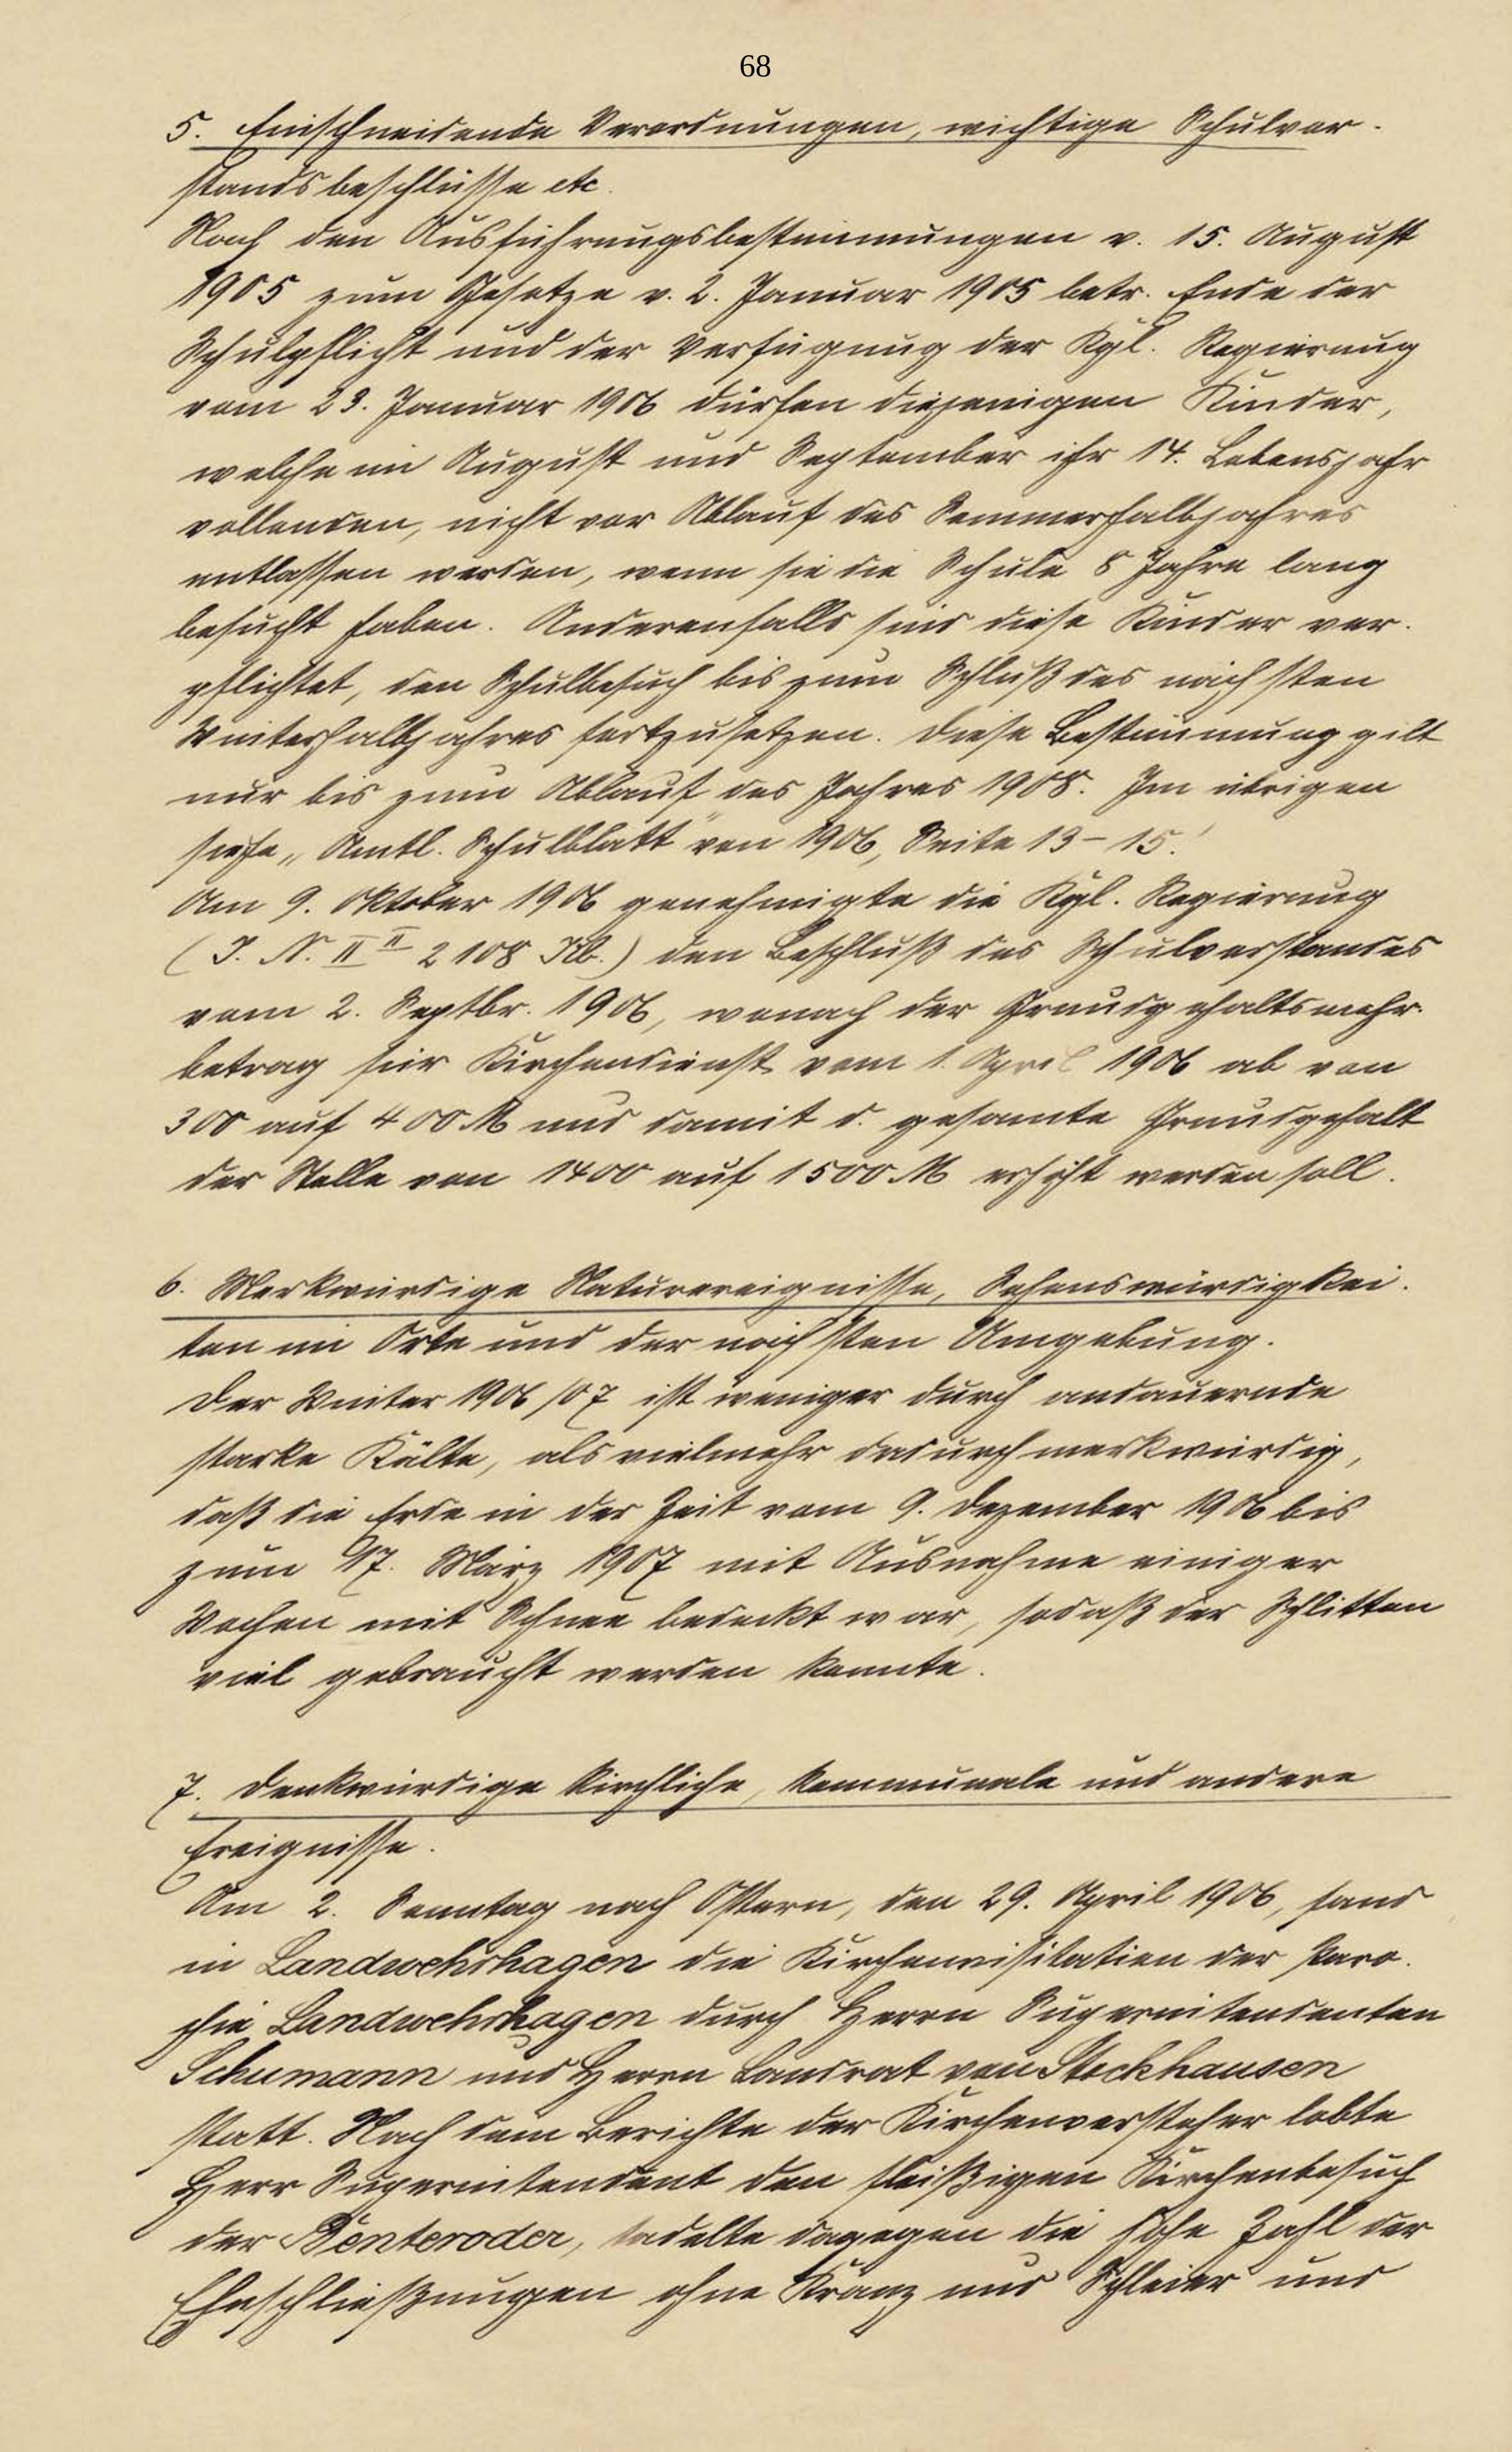 68
5. Einschneidende Verordnungen, wichtige Schulvor-
standsbeschlüsse etc.
Nach den Ausführungsbestimmungen v. 15. August
1905 zum Gesetze v. 2. Januar 1905 betr. Ende der
Schulpflicht und der Verfügung der Kgl. Regierung
vom 23. Januar 1906 dürfen diejenigen Kinder,
welche im August und September ihr 14. Lebensjahr
vollenden, nicht vor Ablauf des Sommerhalbjahres
entlassen werden, wenn sie die Schule 8 Jahre lang
besucht haben. Anderenfalls sind diese Kinder ver-
pflichtet, den Schulbesuch bis zum Schluß des nächsten
Winterhalbjahres fortzusetzen. Diese Bestimmung gilt
nur bis zum Ablauf des Jahres 1908. Im übrigen
siehe „Amtl. Schulblatt" von 1906, Seite 13–15.
Am 9. Oktober 1906 genehmigte die Kgl. Regierung
(J. N. II II 2108 Kb.) den Beschluß des Schulvorstandes
vom 2. Septbr. 1906, wonach der Grundgehaltsmehr-
betrag für Kirchendienst vom 1. April 1906 ab von
300 auf 400 M und damit d. gesamte Grundgehalt
der Stelle von 1400 auf 1500 M erhöht werden soll.
6. Merkwürdige Naturereignisse, Sehenswürdigkei-
ten im Orte und der nächsten Umgebung.
Der Winter 1906/07 ist weniger durch andauernde
starke Kälte, als vielmehr dadurch merkwürdig,
daß die Erde in der Zeit vom 9. Dezember 1906 bis
zum 17. März 1907 mit Ausnahme einiger
Wochen mit Schnee bedeckt war, sodaß der Schlitten
viel gebraucht werden konnte.
7. Denkwürdige kirchliche, kommunale und andere
Ereignisse.
Am 2. Sonntag nach Ostern, den 29. April 1906, fand
in Landwehrhagen die Kirchenvisitation der Paro-
chie Landwehrhagen durch Herrn Superintendenten
Schumann und Herrn Landrat von Stockhausen
statt. Nach dem Berichte der Kirchenvorsteher lobte
Herr Superintendent den fleißigen Kirchenbesuch
der Benteroder, tadelte dagegen die hohe Zahl der
Eheschließungen ohne Kranz und Schleier und